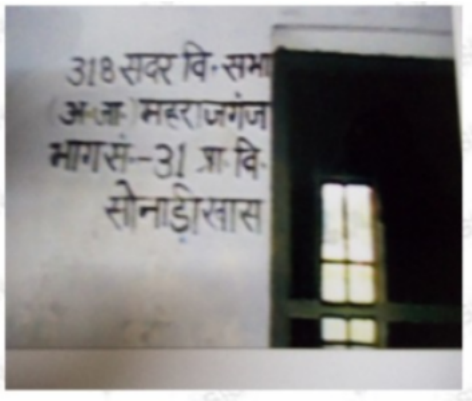 318 सदर वि॰ सभा
(अ॰जा॰) महराजगंज
भाग सं॰-31 प्रा॰ वि॰
सोनाड़ी खास